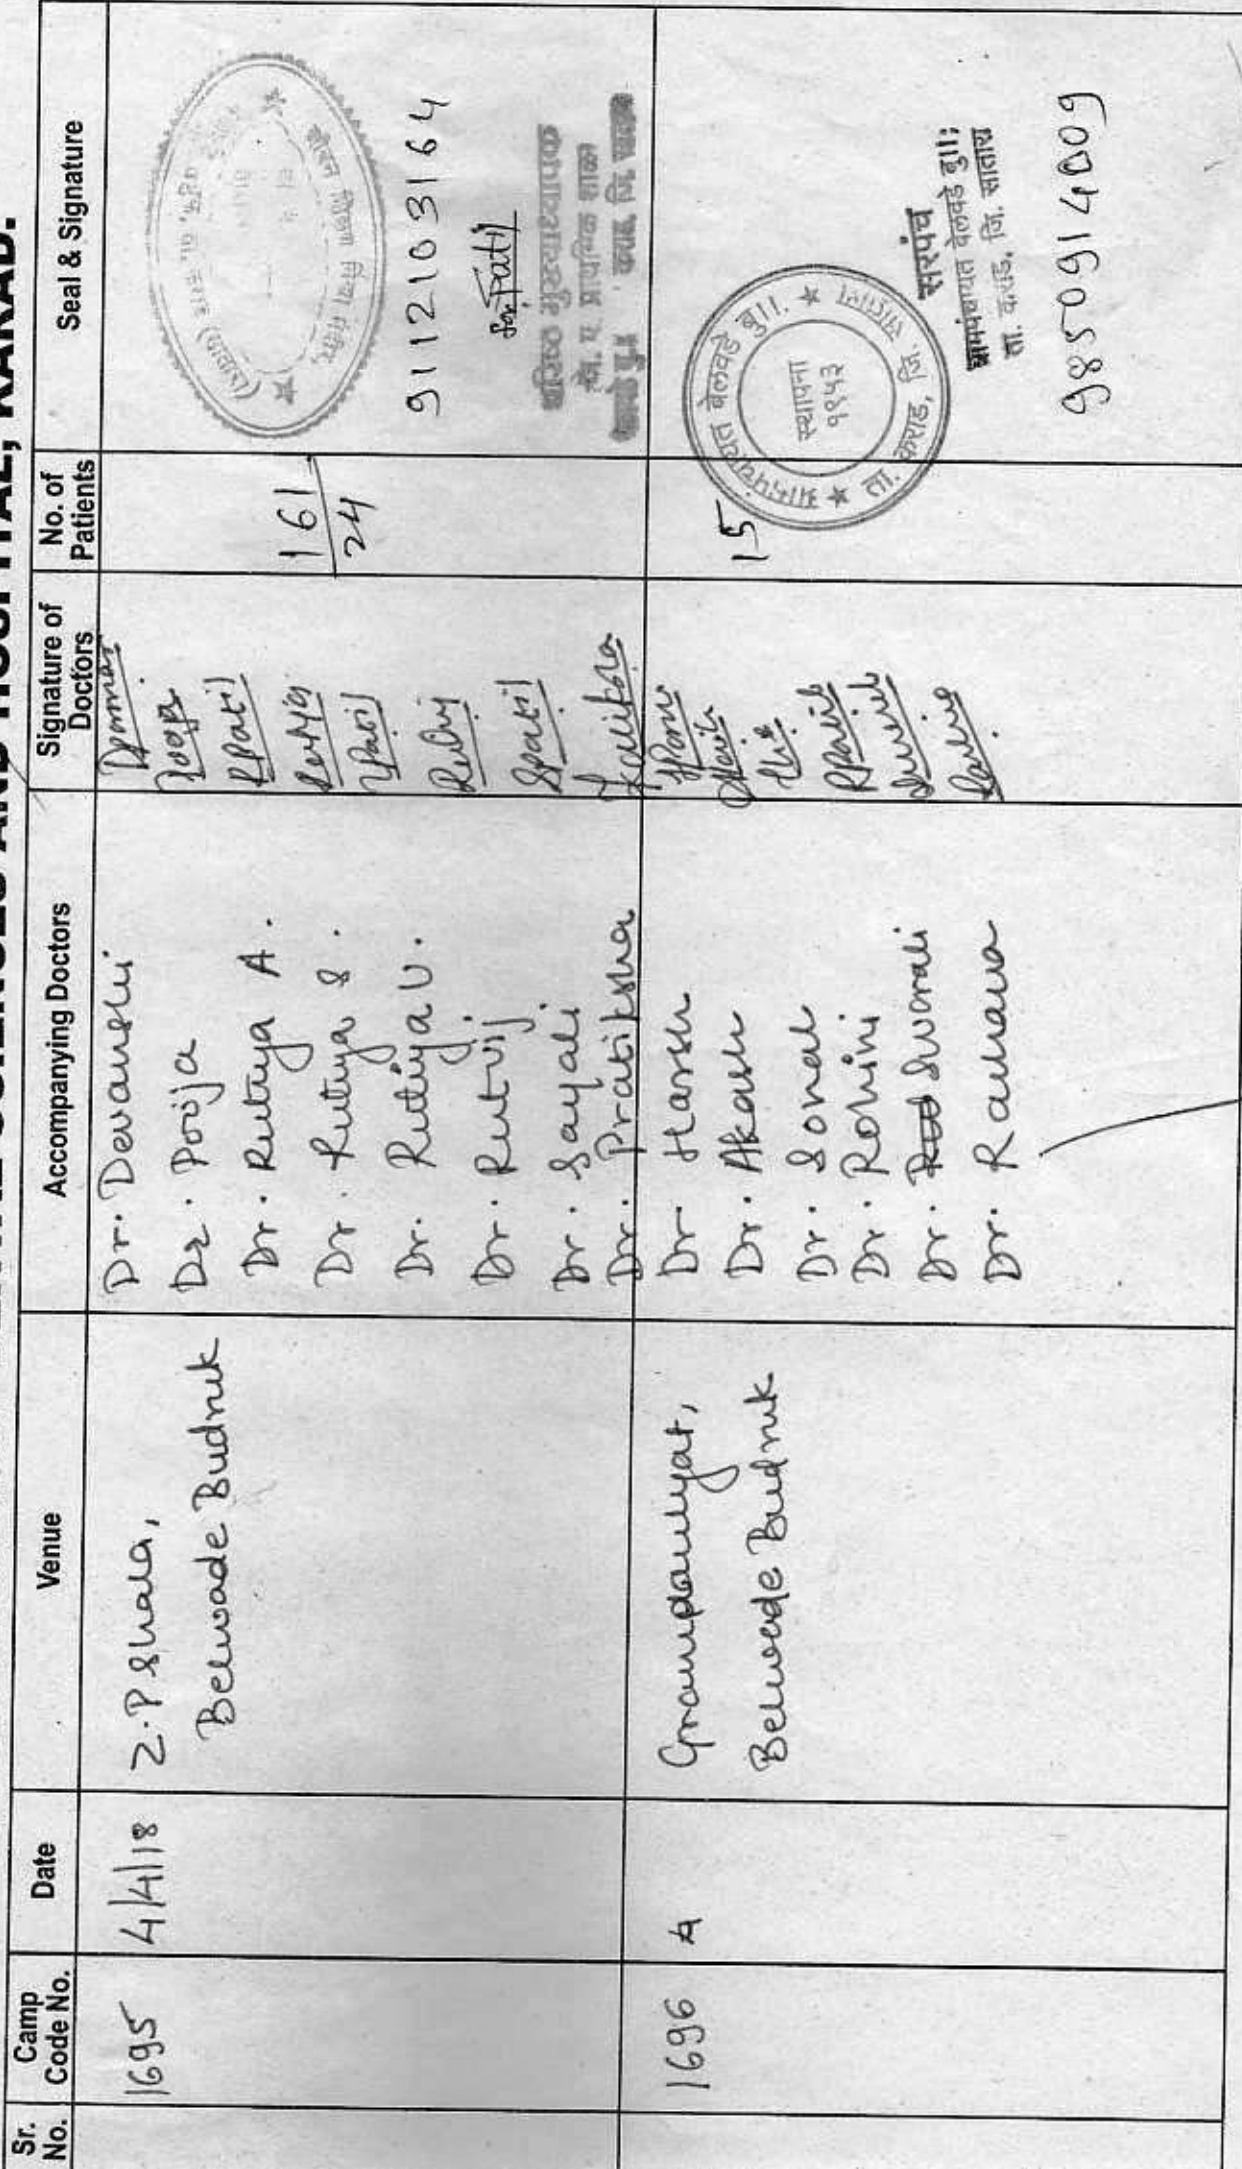 SCIENCES AND HOSPITAL, KARAD.
Sr. No.
Camp Code No.
Date
Venue
Accompanying Doctors
Signature of Doctors
No. of Patients
Seal & Signature
1695
4/4/18
Z.P Shala,
Belwade Budruk
Dr. Devanshi
Dr. Pooja
Dr. Rutuja A.
Dr. Rutuja S.
Dr. Rutuja U.
Dr. Rutvij
Dr. Sayali
Dr. Pratiksha
Pooja
RPatil
YPatil
SPatil
161
24
9112103164
1696
Grampanchyat,
Belwade Budruk
Dr. Harsh
Dr. Akash
Dr. Sonal
Dr. Rohini
Dr. Swarali
Dr. Raunava
15
ग्रामपंचायत बेलवडे बु॥.
ता. कराड, जि. सातारा
स्थापना
१९५३
सरपंच
ग्रामपंचायत बेलवडे बु॥:
ता. कराड, जि. सातारा
9850914009